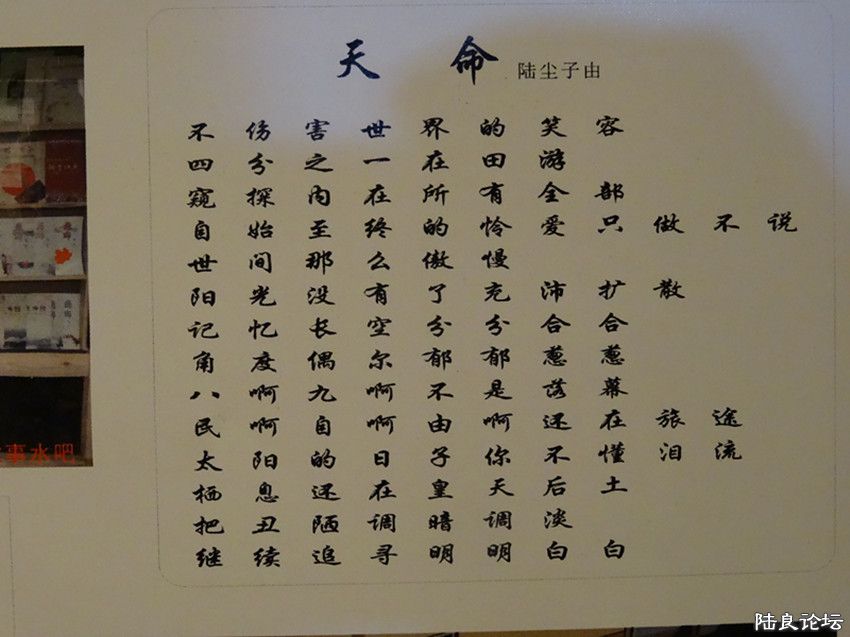 天 命 陆尘子由
不伤害世界的笑容
四分之一在田游
窥探内在所有全部
自始至终的怜爱只做不说
世间那么傲慢
阳光没有了充沛扩散
记忆长空分分合合
角度偶尔郁郁葱葱
八啊九啊不是落幕
民啊自啊由啊还在旅途
太阳的日子你不懂泪流
栖息还在皇天后土
把丑陋调暗调淡
继续追寻明明白白
事水吧
陆良论坛